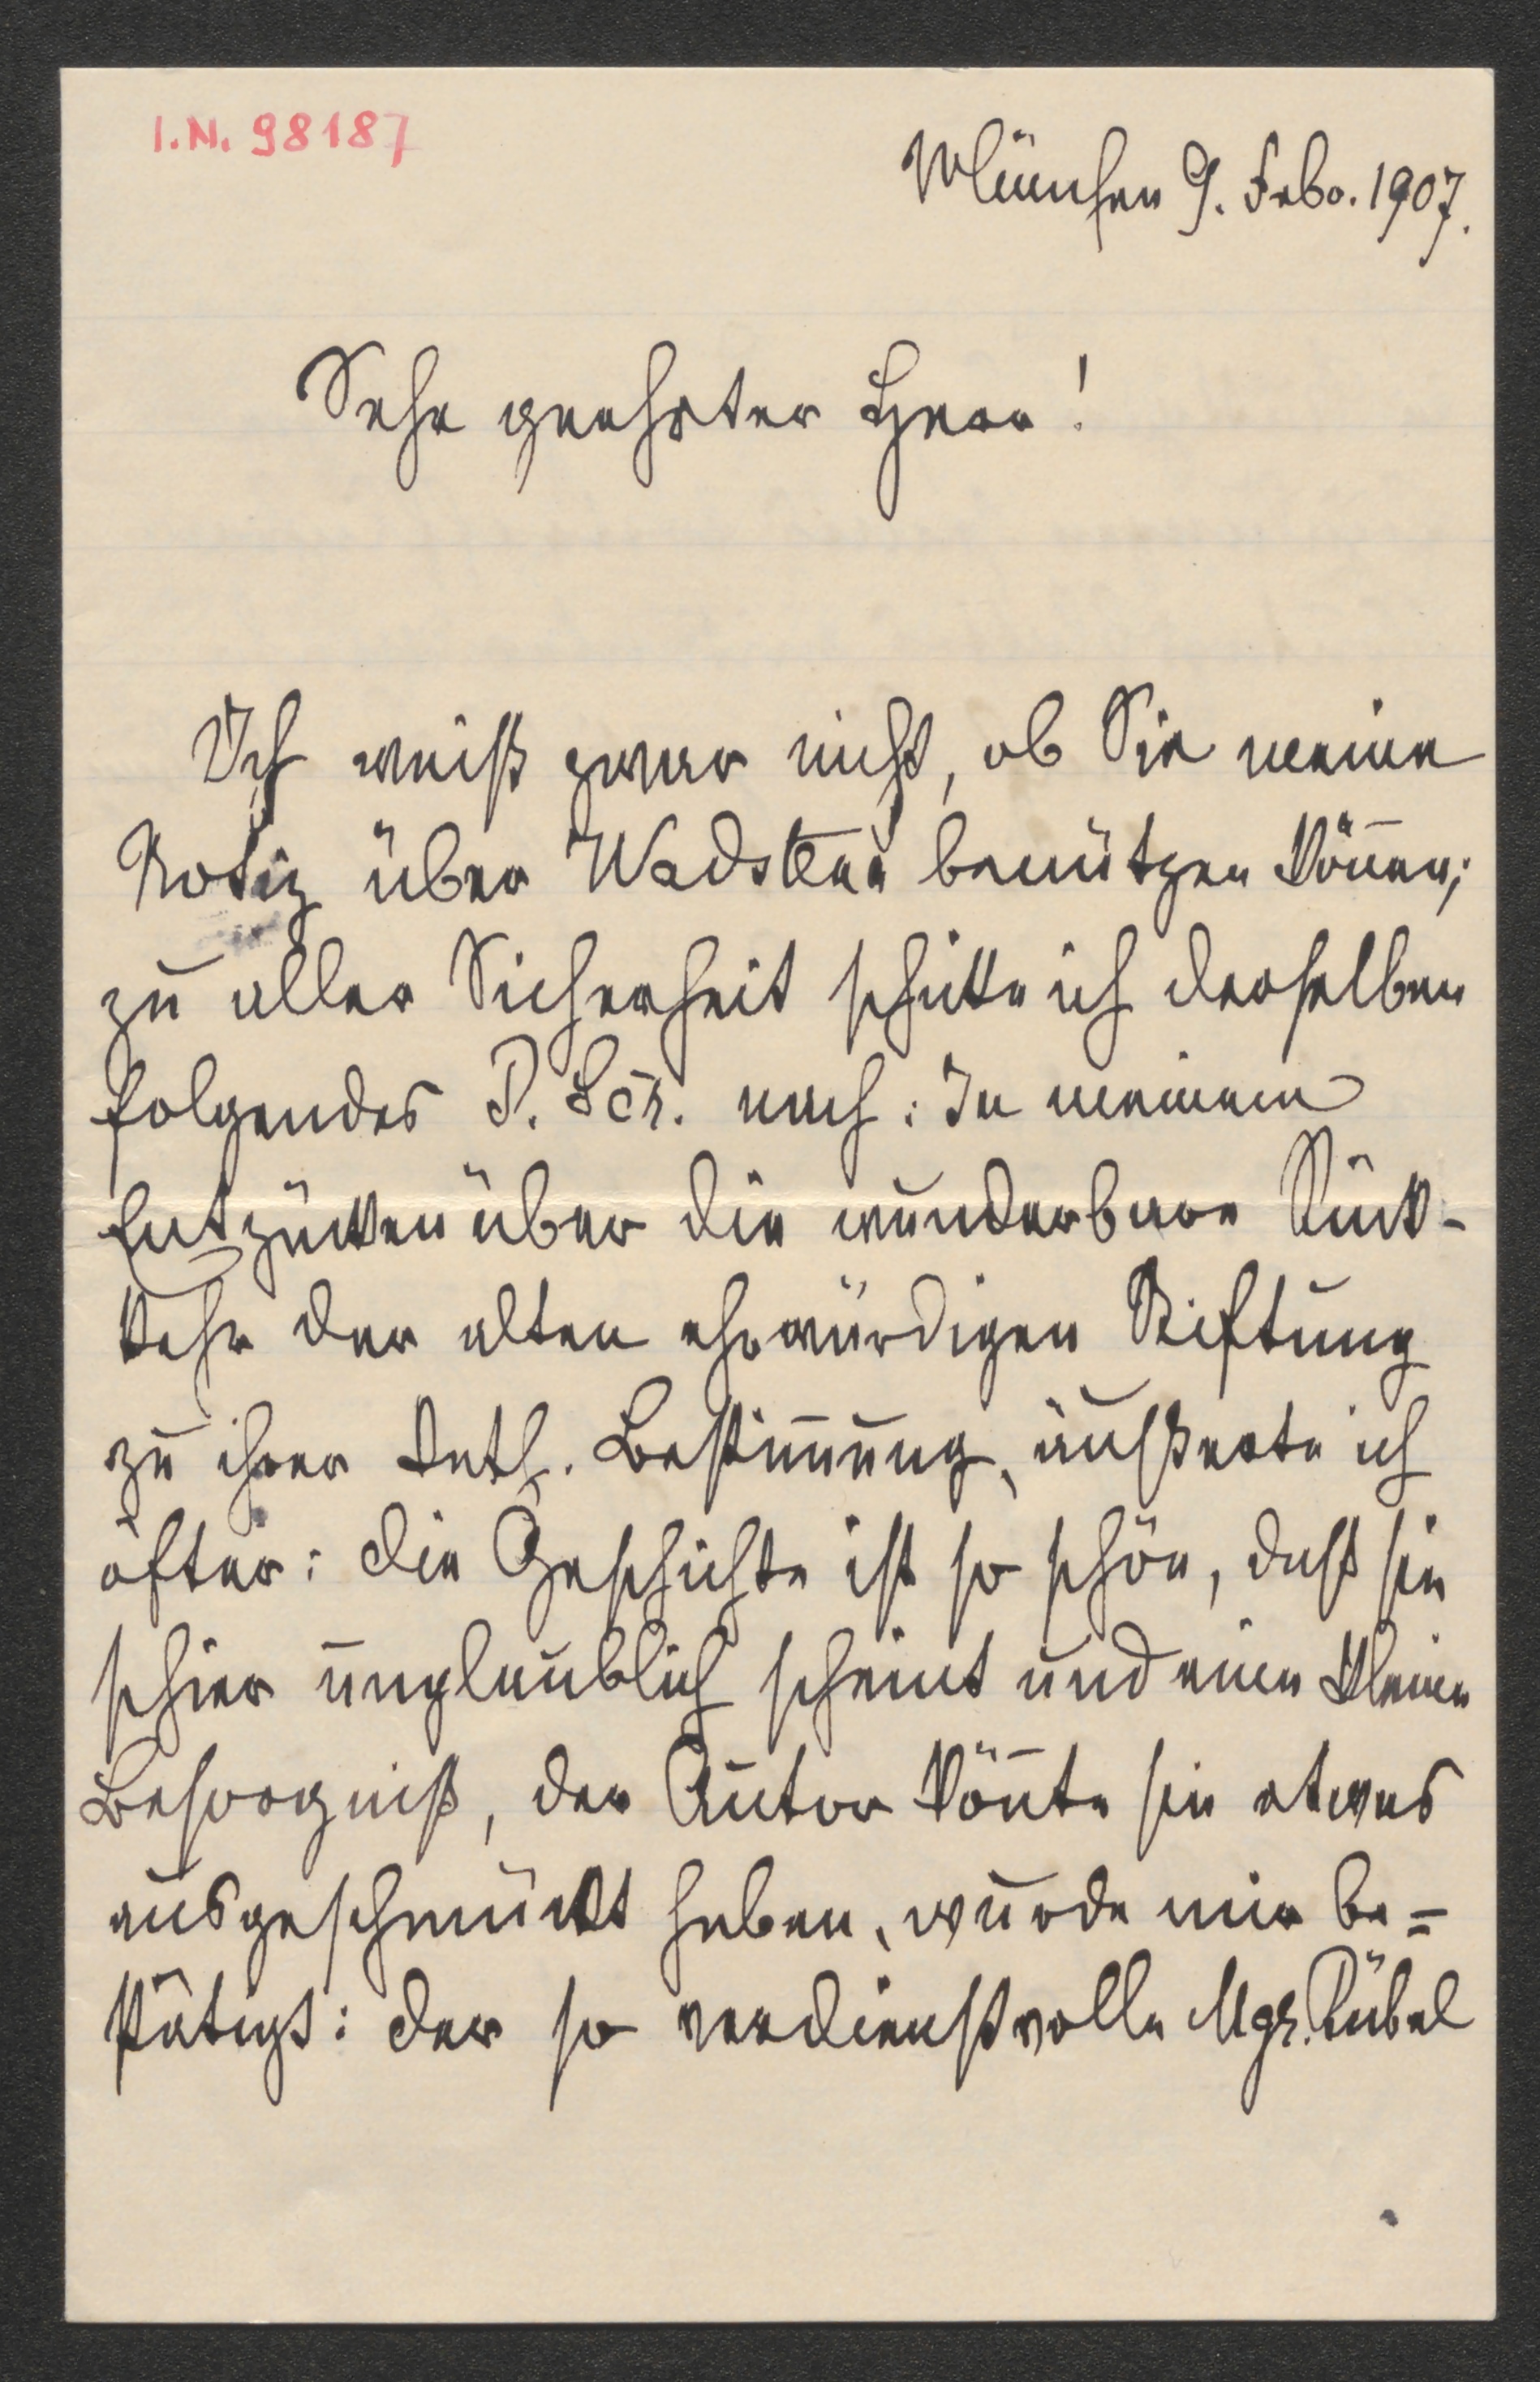 I.N. 98187
München 9. Febr. 1907.
Sehr geehrter Herr!
Ich weiß zwar nicht, ob Sie meine
Notiz über Wadstena benützen kön̄en;
zu aller Sicherheit schicke ich derselben
folgendes P. Scr. nach: In meinem
Entzücken über die wunderbare Rück-
kehr der alten ehrwürdigen Stiftung
zu ihrer kath. Bestim̄ung, äußerte ich
öfter: die Geschichte ist so schön, daß sie
schier unglaublich scheint und eine kleine
Besorgniß, der Autor kön̄te sie etwas
ausgeschmückt haben, wurde mir be=
stätigt: der so verdienstvolle Mgr. Rübel